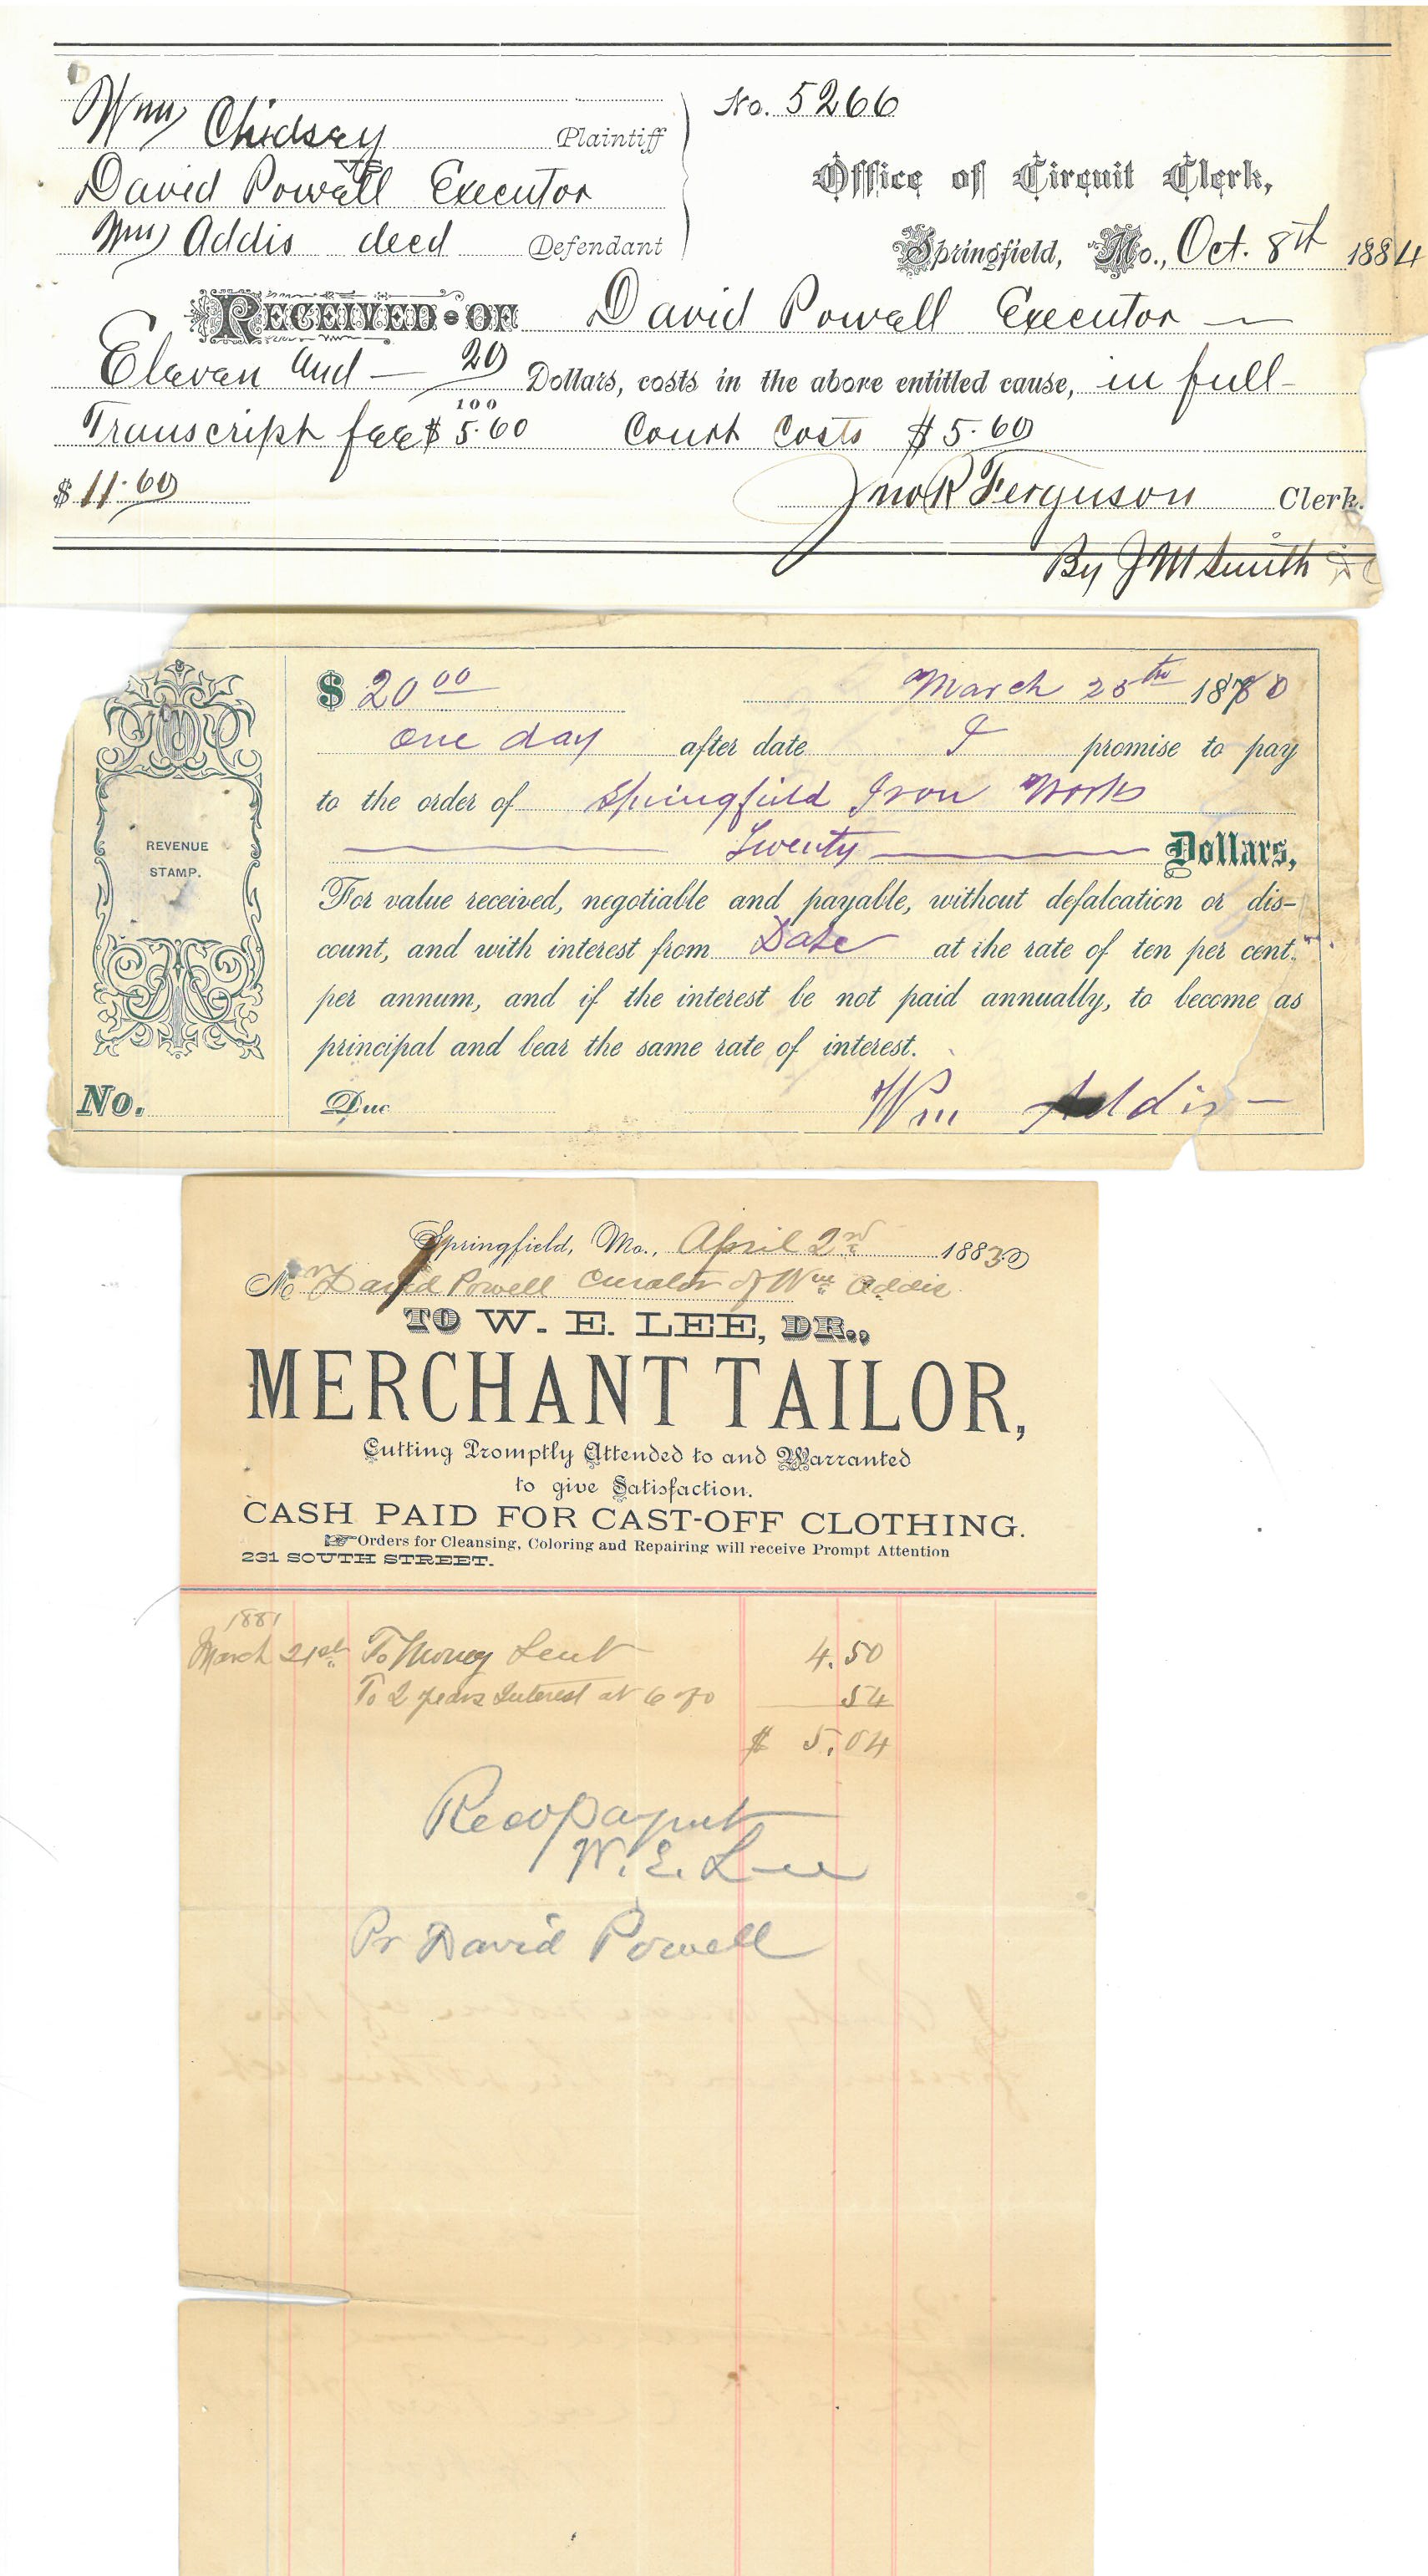 Wm Chidsey Plaintiff
vs
David Powell Executor
Wm Addis decd Defendant
No. 5266
Office of Circuit Clerk,
Springfield, Mo., Oct. 8th 1884
RECEIVED OF David Powell Executor —
Eleven and — 20/100 Dollars, costs in the above entitled cause, in full —
Transcript fee $ 5.60 Court Costs $ 5.60
$ 11.60 Jno R Ferguson Clerk.
By J M Smith
REVENUE
STAMP.
No.
$ 20 00 March 25th 1880
one day after date I promise to pay
to the order of Springfield Iron Works
— Twenty — Dollars,
For value received, negotiable and payable, without defalcation or dis-
count, and with interest from Date at the rate of ten per cent.
per annum, and if the interest be not paid annually, to become as
principal and bear the same rate of interest.
Due Wm Addis —
Springfield, Mo., April 2nd 1883
M David Powell Curator of Wm Addis
TO W. E. LEE, DR.,
MERCHANT TAILOR,
Cutting Promptly Attended to and Warranted
to give Satisfaction.
CASH PAID FOR CAST-OFF CLOTHING.
Orders for Cleansing, Coloring and Repairing will receive Prompt Attention
231 SOUTH STREET.
1881
March 21st To Money Lent 4.50
To 2 years Interest at 6 % 54
$ 5.04
Recd payment
W. E. Lee
Pr David Powell